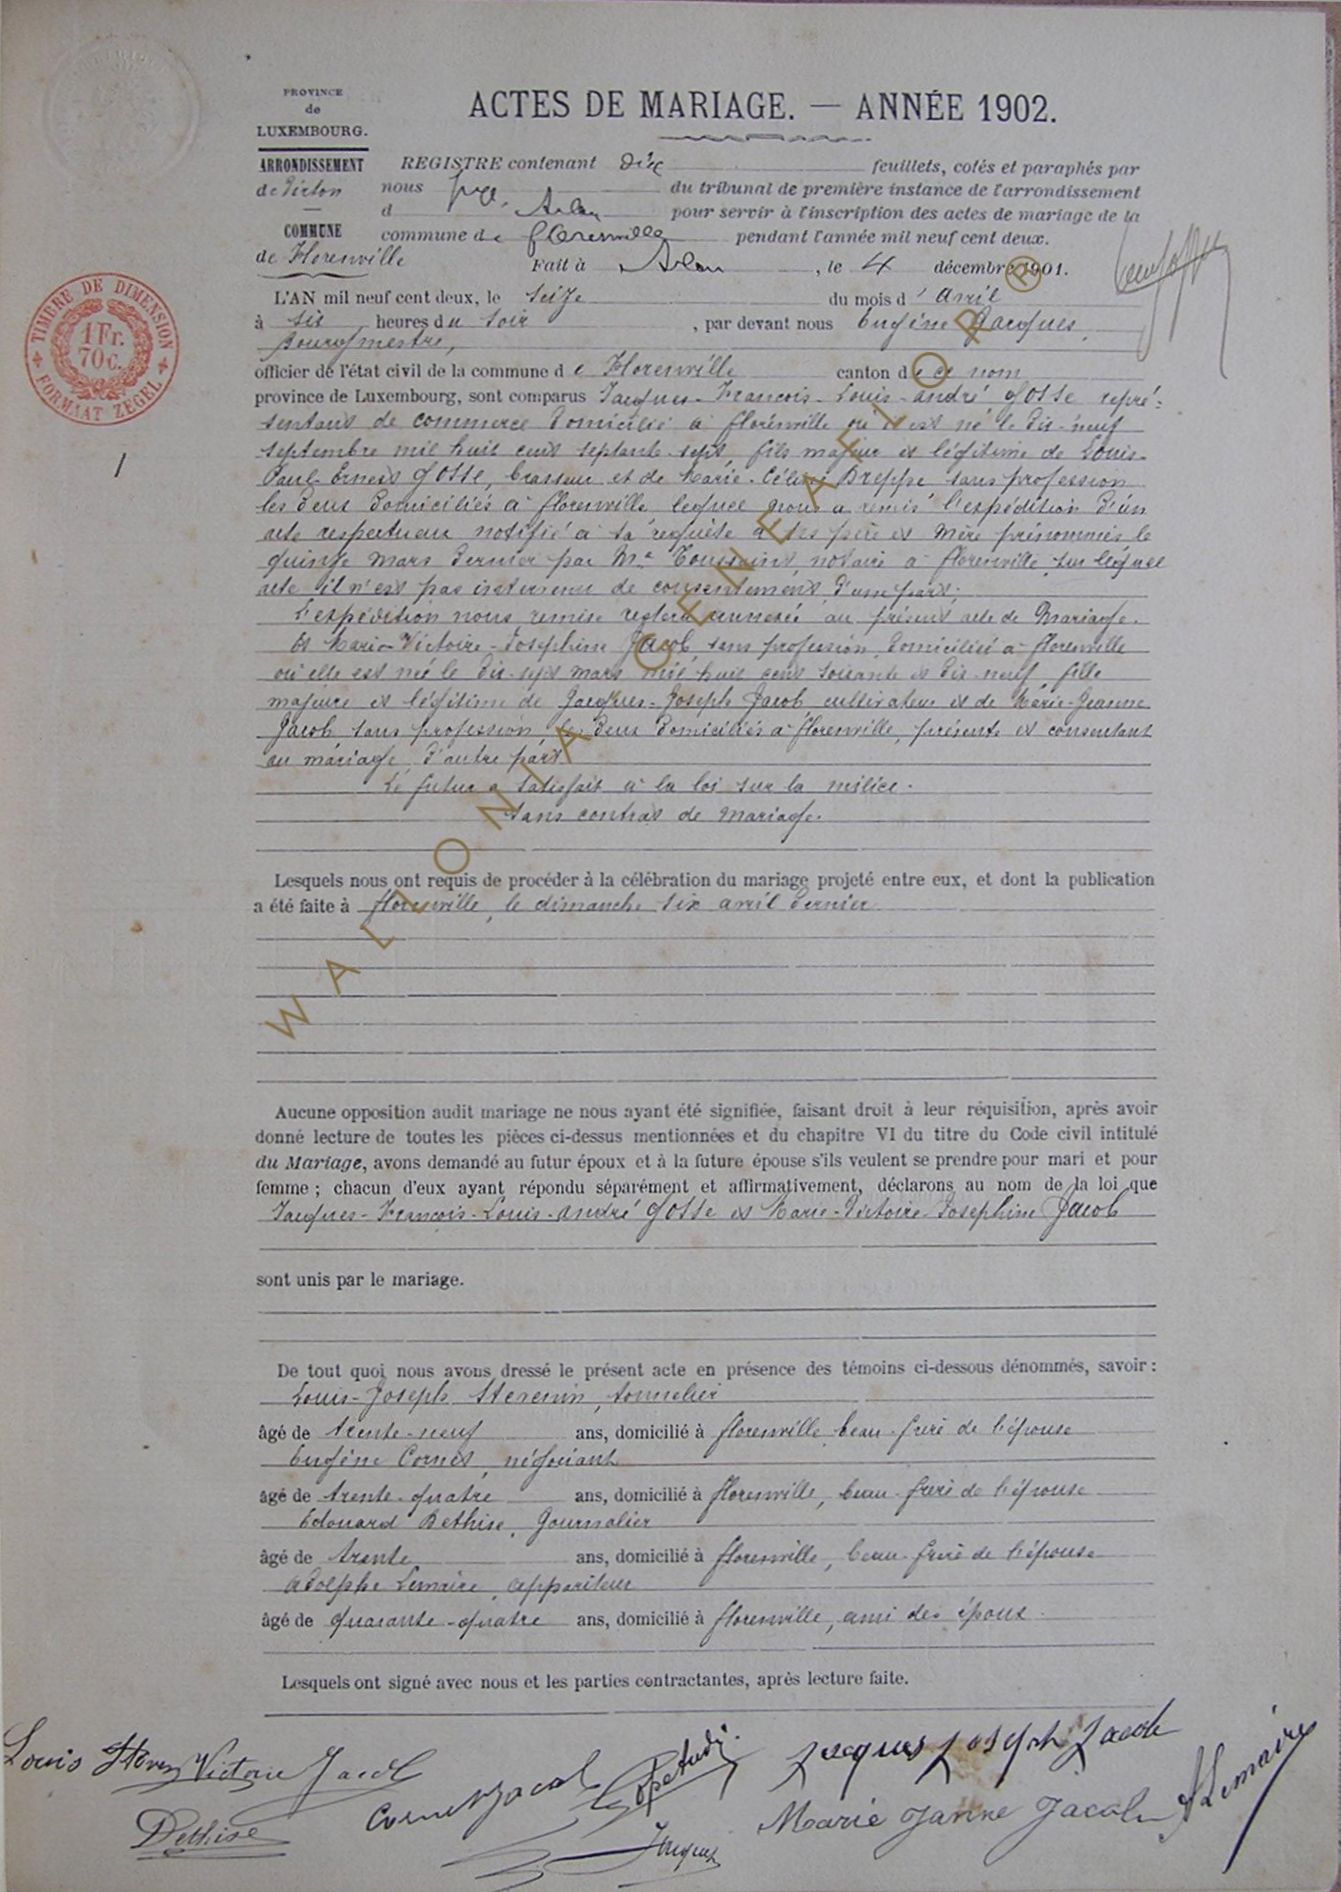 PROVINCE
de
LUXEMBOURG.
ACTES DE MARIAGE. — ANNÉE 1902.
ARRONDISSEMENT
de Virton
COMMUNE
de Florenville
REGISTRE contenant dix feuillets, cotés et paraphés par
nous Juge, du tribunal de première instance de l'arrondissement
d'Arlon pour servir à l'inscription des actes de mariage de la
commune de Florenville pendant l'année mil neuf cent deux.
Fait à Arlon, le 4 décembre 1901.
TIMBRE DE DIMENSION
1 Fr.
70 c.
FORMAAT ZEGEL
1
L'AN mil neuf cent deux, le seize du mois d'Avril
à six heures du soir, par devant nous Eugène Jacques,
bourgmestre,
officier de l'état civil de la commune de Florenville canton de ce nom
province de Luxembourg, sont comparus Jacques-François-Louis-André Gosse repré-
sentant de commerce domicilié à Florenville où il est né le dix-neuf
septembre mil huit cent septante sept, fils majeur et légitime de Louis-
Paul-Ernest Gosse, brasseur et de Marie-Céline Dreppe sans profession
les deux domiciliés à Florenville lequel nous a remis l'expédition d'un
acte respectueux notifié à sa requête à ses père et mère prénommés le
quinze mars dernier par Me Toussaint, notaire à Florenville, sur lequel
acte il n'est pas intervenu de consentement d'une part;
L'expédition nous remise restera annexée au présent acte de Mariage.
Et Marie-Victoire-Joséphine Jacob, sans profession, domiciliée à Florenville
où elle est née le dix-sept mars mil huit cent soixante et dix-neuf, fille
majeure et légitime de Jacques-Joseph Jacob, cultivateur et de Marie-Jeanne
Jacob sans profession, les deux domiciliés à Florenville, présents et consentant
au mariage, d'autre part.
Le futur a satisfait à la loi sur la milice.
Sans contrat de mariage.
Lesquels nous ont requis de procéder à la célébration du mariage projeté entre eux, et dont la publication
a été faite à Florenville, le dimanche six avril dernier
Aucune opposition audit mariage ne nous ayant été signifiée, faisant droit à leur réquisition, après avoir
donné lecture de toutes les pièces ci-dessus mentionnées et du chapitre VI du titre du Code civil intitulé
du Mariage, avons demandé au futur époux et à la future épouse s'ils veulent se prendre pour mari et pour
femme ; chacun d'eux ayant répondu séparément et affirmativement, déclarons au nom de la loi que
Jacques-François-Louis-André Gosse et Marie-Victoire-Joséphine Jacob
sont unis par le mariage.
De tout quoi nous avons dressé le présent acte en présence des témoins ci-dessous dénommés, savoir :
Louis-Joseph Stevenin, tonnelier
âgé de trente-neuf ans, domicilié à Florenville, beau-frère de l'épouse
Eugène Cornet, négociant
âgé de trente-quatre ans, domicilié à Florenville, beau-frère de l'épouse
Edouard Bethise, Journalier
âgé de trente ans, domicilié à Florenville, beau-frère de l'épouse
Adolphe Lemaire, appariteur
âgé de quarante-quatre ans, domicilié à Florenville, ami des époux
Lesquels ont signé avec nous et les parties contractantes, après lecture faite.
Louis Victorie Jacob
Cornet Jacob
Jacques Joseph Jacob
A Lemaire
Marie Janne Jacob
Jacques
WALLONIA GENEAFLOR B